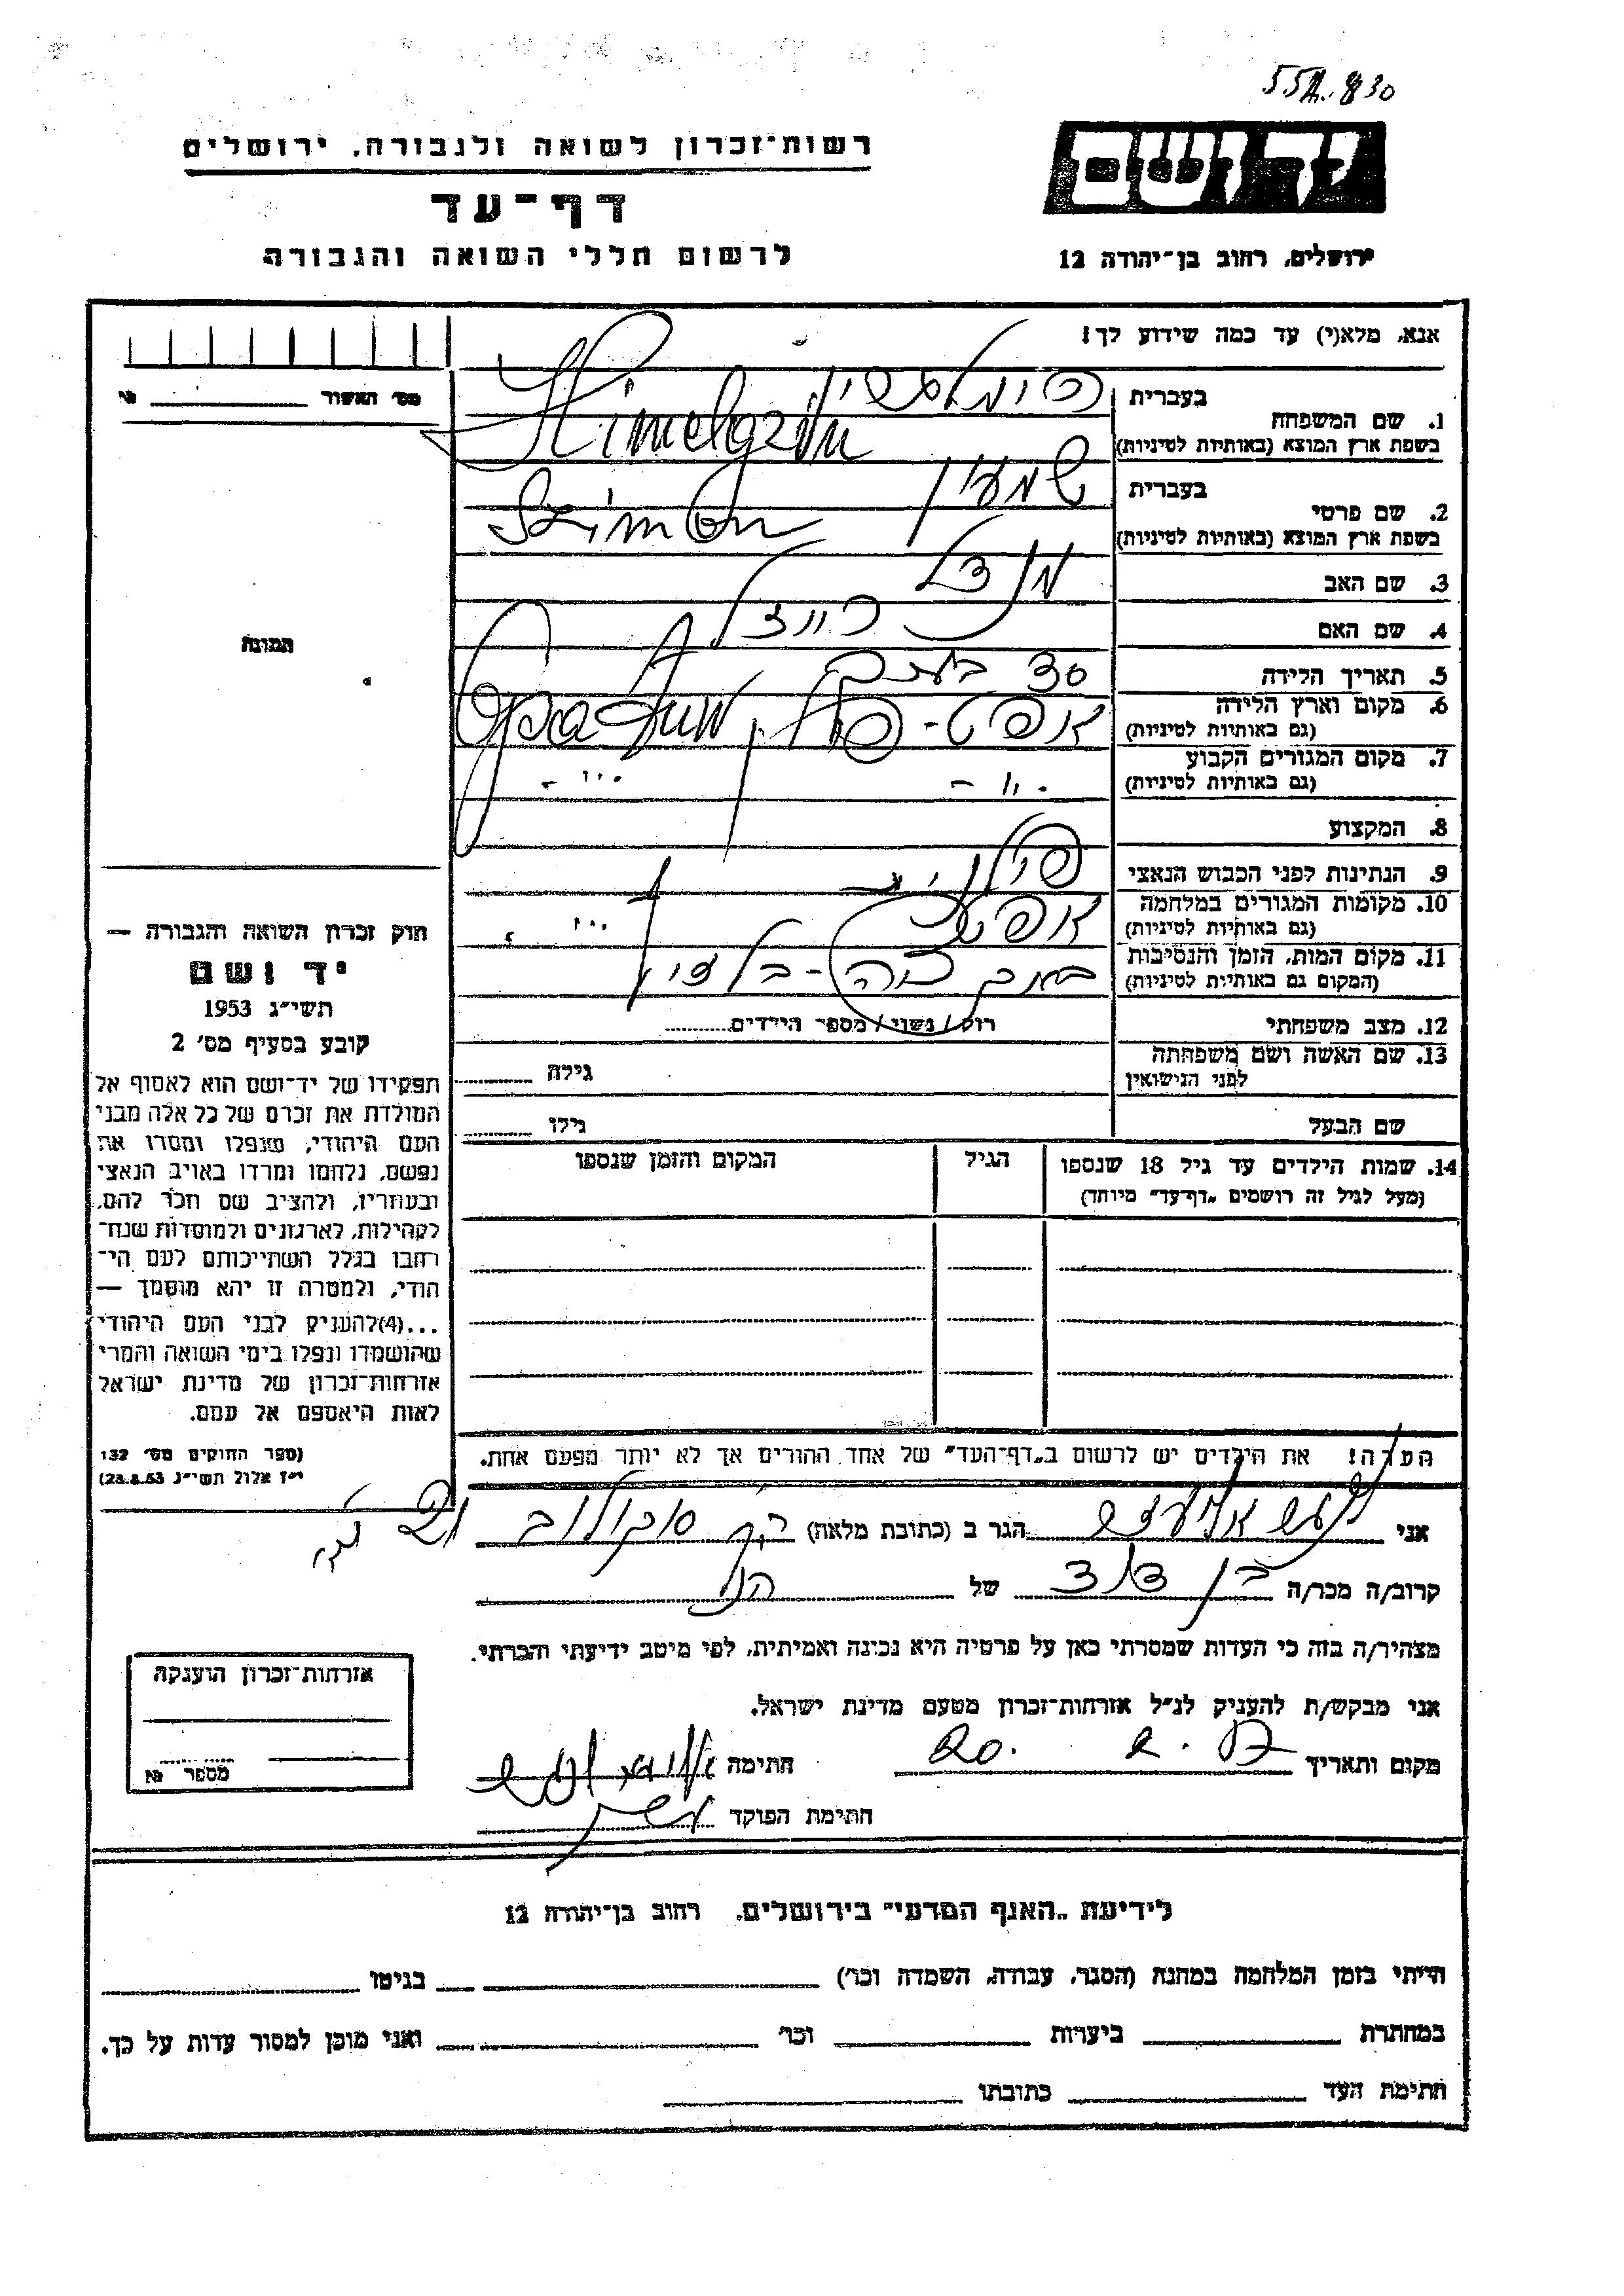 רשות־זכרון לשואה ולגבורה, ירושלים
דף־עד
לרשום חללי השואה והגבורה
יד ושם
ירושלים, רחוב בן־יהודה 12
אנא, מלא(י) עד כמה שידוע לך!
מס' האשור
תמונה
1. שם המשפחה
בעברית
בשפת ארץ המוצא (באותיות לטיניות)
Himelszajn
2. שם פרטי
בעברית שמעון
בשפת ארץ המוצא (באותיות לטיניות)
Szimon
3. שם האב מנדל
4. שם האם
5. תאריך הלידה 30
6. מקום וארץ הלידה
(גם באותיות לטיניות)
7. מקום המגורים הקבוע - " -
(גם באותיות לטיניות)
8. המקצוע
9. הנתינות לפני הכבוש הנאצי
10. מקומות המגורים במלחמה
(גם באותיות לטיניות)
11. מקום המות, הזמן והנסיבות
(המקום גם באותיות לטיניות)
12. מצב משפחתי רווק / נשוי / מספר הילדים
13. שם האשה ושם משפחתה גילה
לפני הנישואין
שם הבעל גילו
14. שמות הילדים עד גיל 18 שנספו הגיל המקום והזמן שנספו
(מעל לגיל זה רושמים „דף־עד" מיוחד)
חוק זכרון השואה והגבורה —
יד ושם
תשי"ג 1953
קובע בסעיף מס' 2
תפקידו של יד־ושם הוא לאסוף אל
המולדת את זכרם של כל אלה מבני
העם היהודי, שנפלו ומסרו את
נפשם, נלחמו ומרדו באויב הנאצי
ובעוזריו, ולהציב שם וזכר להם,
לקהילות, לארגונים ולמוסדות שנח־
רבו בגלל השתייכותם לעם הי־
הודי, ולמטרה זו יהא מוסמך —
...(4)להעניק לבני העם היהודי
שהושמדו ונפלו בימי השואה והמרי
אזרחות־זכרון של מדינת ישראל
לאות היאספם אל עמם.
(ספר החוקים מס' 132
י"ז אלול תשי"ג 28.8.53)
הערה! את הילדים יש לרשום ב„דף־העד" של אחד ההורים אך לא יותר מפעם אחת.
אני הגר ב (כתובת מלאה) סוקולוב
קרוב/ה מכר/ה בן דוד של הנ"ל
מצהיר/ה בזה כי העדות שמסרתי כאן על פרטיה היא נכונה ואמיתית, לפי מיטב ידיעתי והכרתי.
אני מבקש/ת להעניק לנ"ל אזרחות־זכרון מטעם מדינת ישראל.
מקום ותאריך חתימה
חתימת הפוקד
אזרחות־זכרון הוענקה
מספר
לידיעת „האגף המדעי" בירושלים, רחוב בן־יהודה 12
הייתי בזמן המלחמה במחנה (הסגר, עבודה, השמדה וכו') בגיטו
במחתרת ביערות וכו' ואני מוכן למסור עדות על כך.
חתימת העד כתובתו